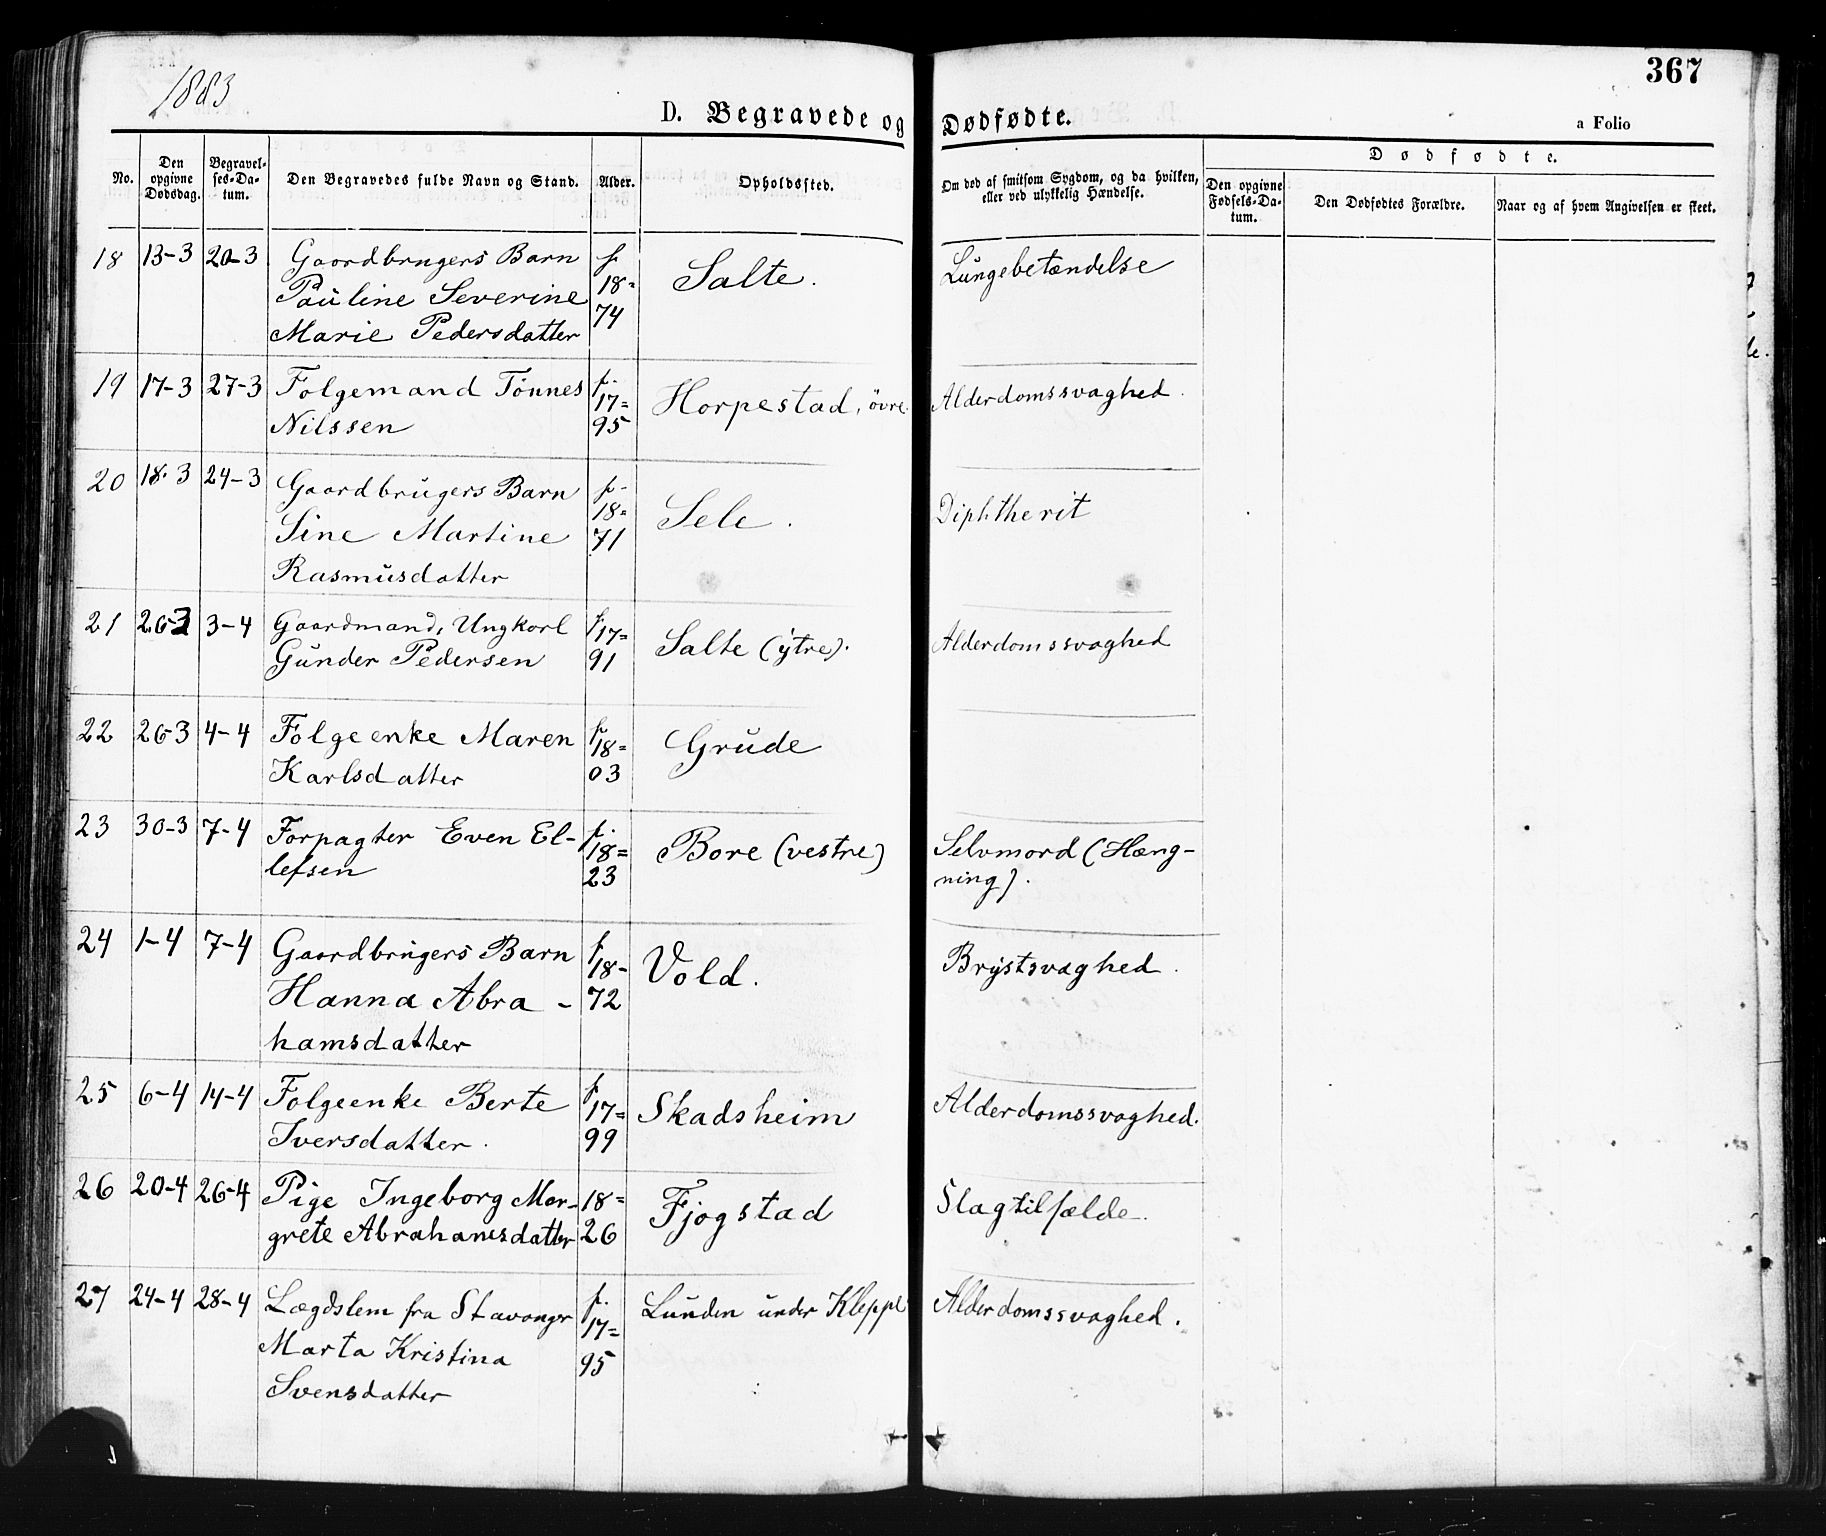 1883
367
D. Begravede og Dødfødte.
a Folio
No.
Den opgivne Dødsdag.
Begravel-
ses-Da-
tum.
Den Begravedes fulde Navn og Stand.
Alder.
Opholdssted.
Om død af smitsom Sygdom, og da hvilken,
eller ved ulykkelig Hændelse.
Dødfødte.
Den opgivne
Fødsels-Da-
tum.
Den Dødfødtes Forældre.
Naar og af hvem Angivelsen er skeet.
18 13-3 20-3 Gaardbrugers Barn f Salte. Lungebetændelse
Pauline Severine 18=
Marie Pedersdatter 74
19 17-3 27-3 Folgemand Tönnes f. Horpestad, övre. Alderdomssvaghed.
Nilssen 17=
95
20 18-3 24-3 Gaardbrugers Barn f- Sele. Diphtherit
Sine Martine 18=
Rasmusdatter 71
21 26-3 3-4 Gaardmand, Ungkarl f 17= Salte (ytre). Alderdomssvaghed
Gunder Pedersen 91
22 26-3 4-4 Folgeenke Maren f 18= Grude
Karlsdatter 03
23 30-3 7-4 Forpagter Even El- f. 18= Bore (vestre) Selvmord (Hæng-
lefsen 23 ning).
24 1-4 7-4 Gaardbrugers Barn f 18- Vold. Brystsvaghed.
Hanna Abra- 72
hamsdatter
25 6-4 14-4 Folgeenke Berte f 17= Skadsheim Alderdomssvaghed.
Iversdatter. 99
26 20-4 26-4 Pige Ingeborg Mar- 18= Fjogstad Slagtilfælde.
grete Abrahamsdatter 26
27 24-4 28-4 Lægdslem fra Stavanger f. Lunden under Kleppe Alderdomssvaghed.
Marta Kristina 17=
Svensdatter 95